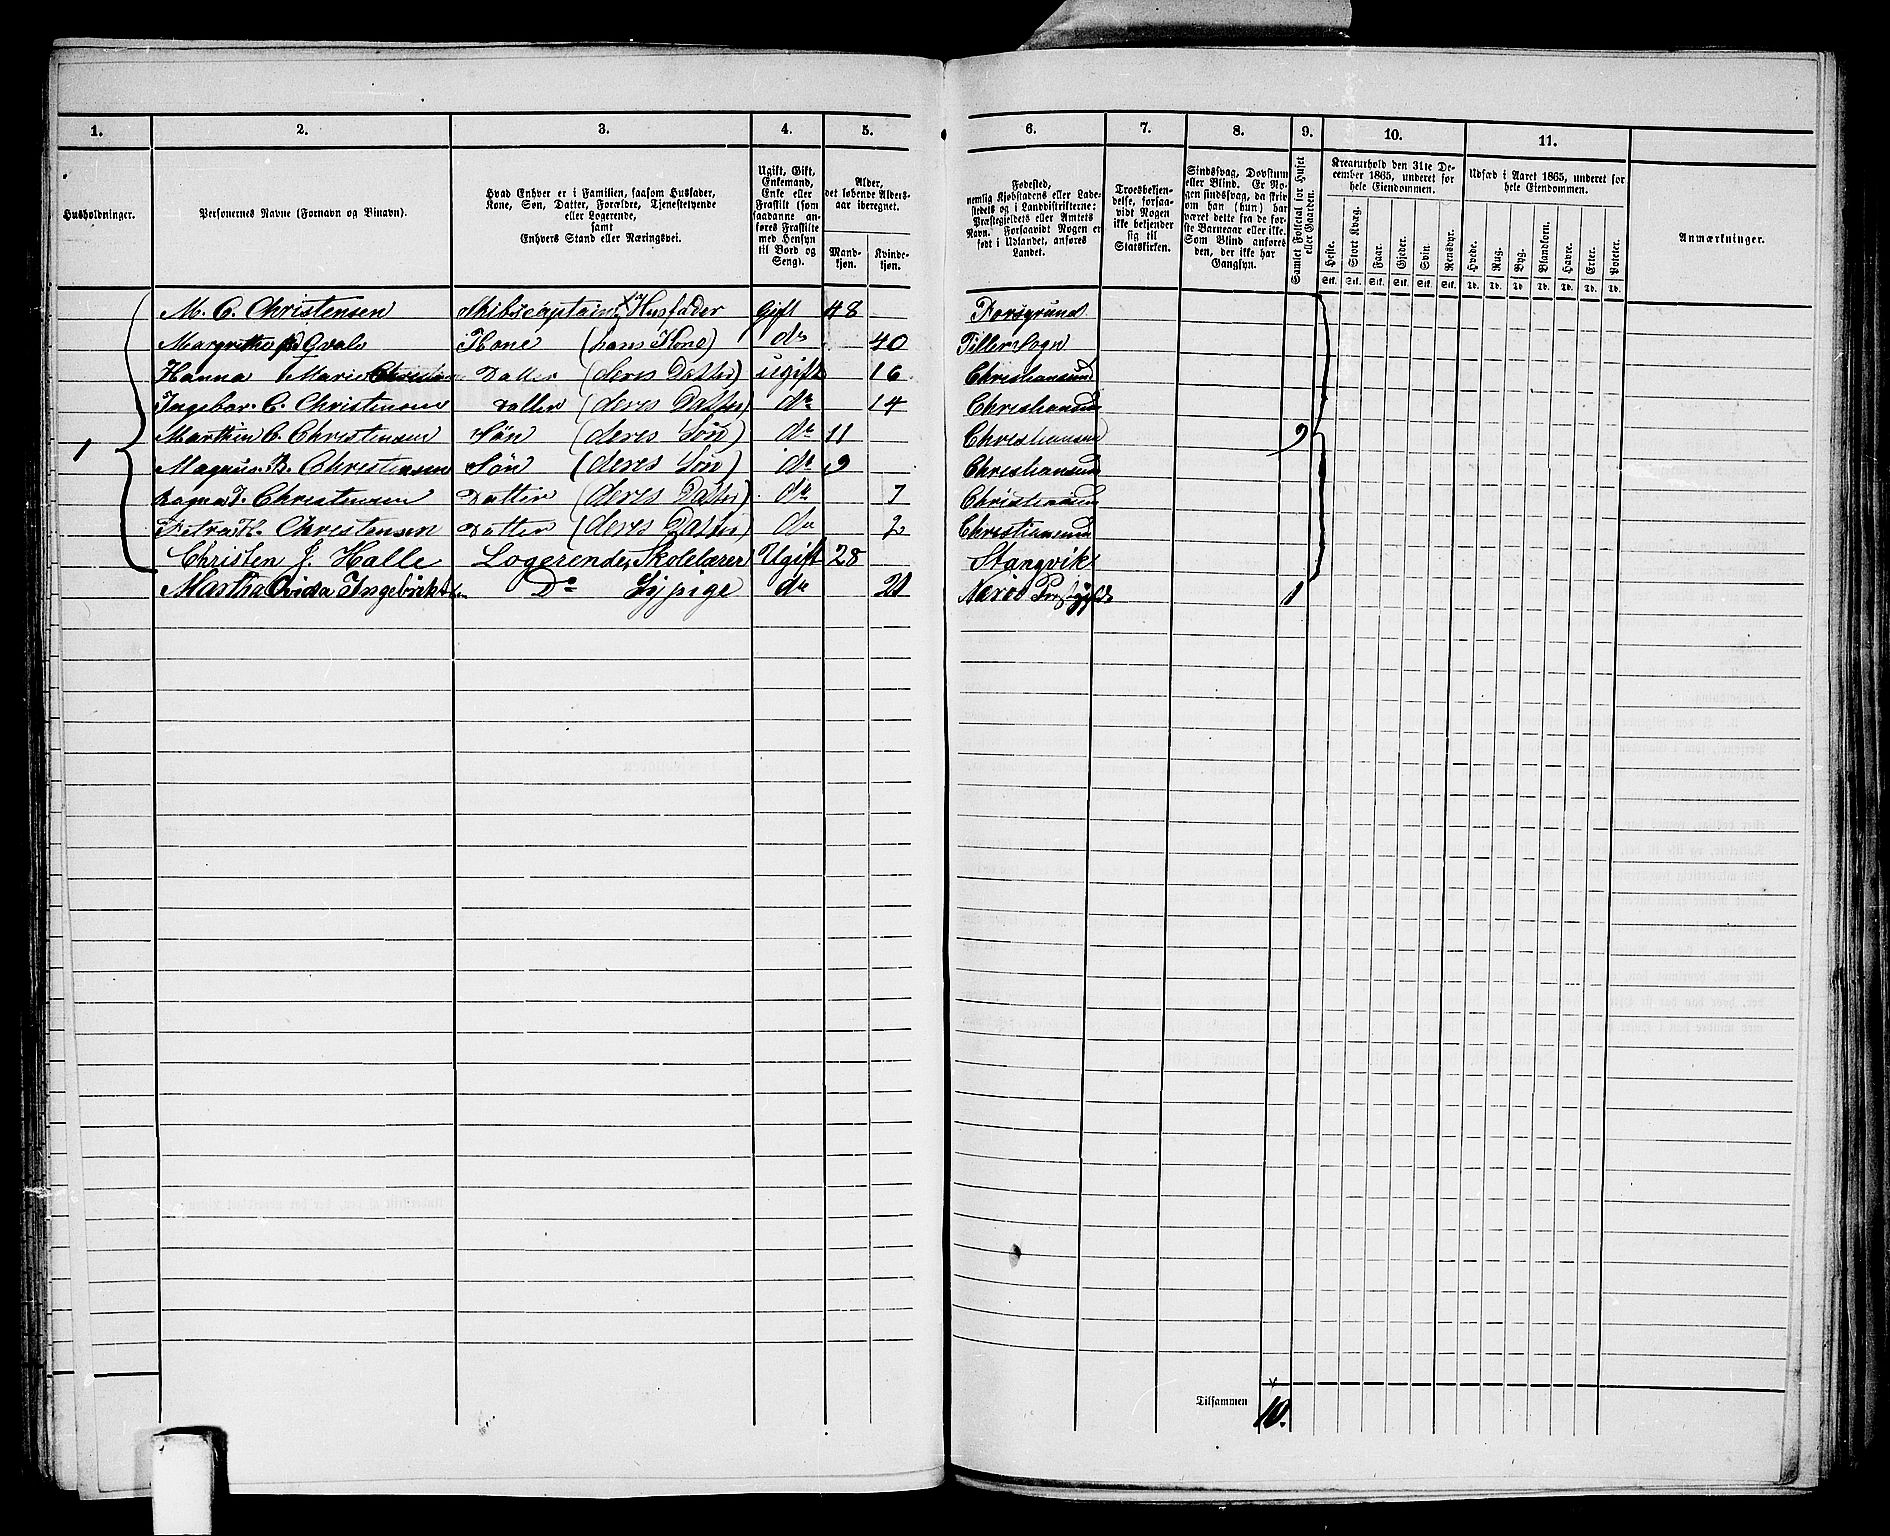 1. 2. 3. 4. 5. 6. 7. 8. 9. 10. 11.
Husholdninger.
Personernes Navne (Fornavn og Binavn).
Hvad Enhver er i Familien, saasom Husfader,
Kone, Søn, Datter, Forældre, Tjenestetyende
eller Logerende,
samt
Enhvers Stand eller Næringsvei.
Ugift, Gift,
Enkemand,
Enke eller
Fraskilt (som
saadanne an-
føres Fraskilte
med Hensyn
til Bord og
Seng).
Alder,
det løbende Alders-
aar iberegnet.
Mand-
kjøn.
Kvinde-
kjøn.
Fødested,
nemlig Kjøbstadens eller Lade-
stedets og i Landdistrikterne:
Præstegjeldets eller Amtets
Navn. Forsaavidt Nogen er
født i Udlandet, anføres
Landet.
Troesbekjen-
delse, forsaa-
vidt Nogen
ikke bekjender
sig til
Statskirken.
Sindssvag, Døvstum
eller Blind. Er No-
gen sindssvag, da skriv
om han (hun) har
været dette fra de før-
ste Barneaar eller ikke.
Som Blind anføres
den, der ikke har
Gangsyn.
Samlet Folketal for Huset
eller Gaarden.
Kreaturhold den 31te De-
cember 1865, underet for
hele Eiendommen.
Heste. Stort Kvæg. Faar. Gjeder. Svin. Rensdyr.
Stk. Stk. Stk. Stk. Stk. Stk.
Udsæd i Aaret 1865, underet for
hele Eiendommen.
Hvede. Rug. Byg. Blandkorn. Havre. Erter. Poteter.
Td. Td. Td. Td. Td. Td. Td.
Anmærkninger.
M. C. Christensen Skibscaptain Husfader Gift 48 Porsgrund
Margrethe Qvale Kone (hans Kone) do 40 Tiller Sogn
Hanna Marie Christen Datter (deres Datter) ugift 16 Christiansund
Ingebor. C. Christensen Datter (deres Datter) do 14 Christiansun
1 Marthin C. Christensen Søn (deres Søn) do 11 Christiansun 9
Magnus B. Christensen Søn (deres Søn) do 9 Christiansund
Lagna J. Christensen Datter (deres Datter) do 7 Christiansund
Petra H. Christensen Datter (deres Datter) do 2 Christiansund
Christen J. Halle Logerende, Skolelærer Ugift 28 Stangvik
Martha Ovida Ingebrikt Do Sypige do 21 Nærøe Prestegjeld 1
Tilsammen 10.